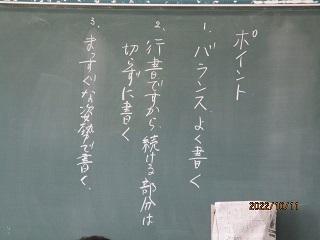 ポイント
1. バランスよく書く
2. 行書ですから、続ける部分は
切らずに書く
3. まっすぐな姿勢で書く。
2022/10/11